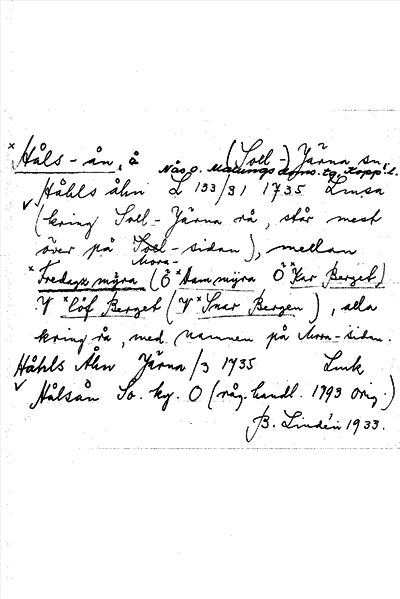 Håls-ån, å (Soll-) Järna sn
Nås o. Malungs doms. tg, Kopp. l.
Håhls åhn L 133/31 1735 Lmsa
(kring Soll-Järna rå, står mest
över på Soll-sidan), mellan
Mora-
Fredags myra (Ö Dam myra Ö Kar Berget)
V Löf Berget (V Snar Bergen), alla
kring rå, med namnen på Mora-sidn.
Håhls Åhn Järna /3 1735 Lmk
Hålsån So. ky. O (råg. handl. 1793 orig.)
B. Lindén 1933.